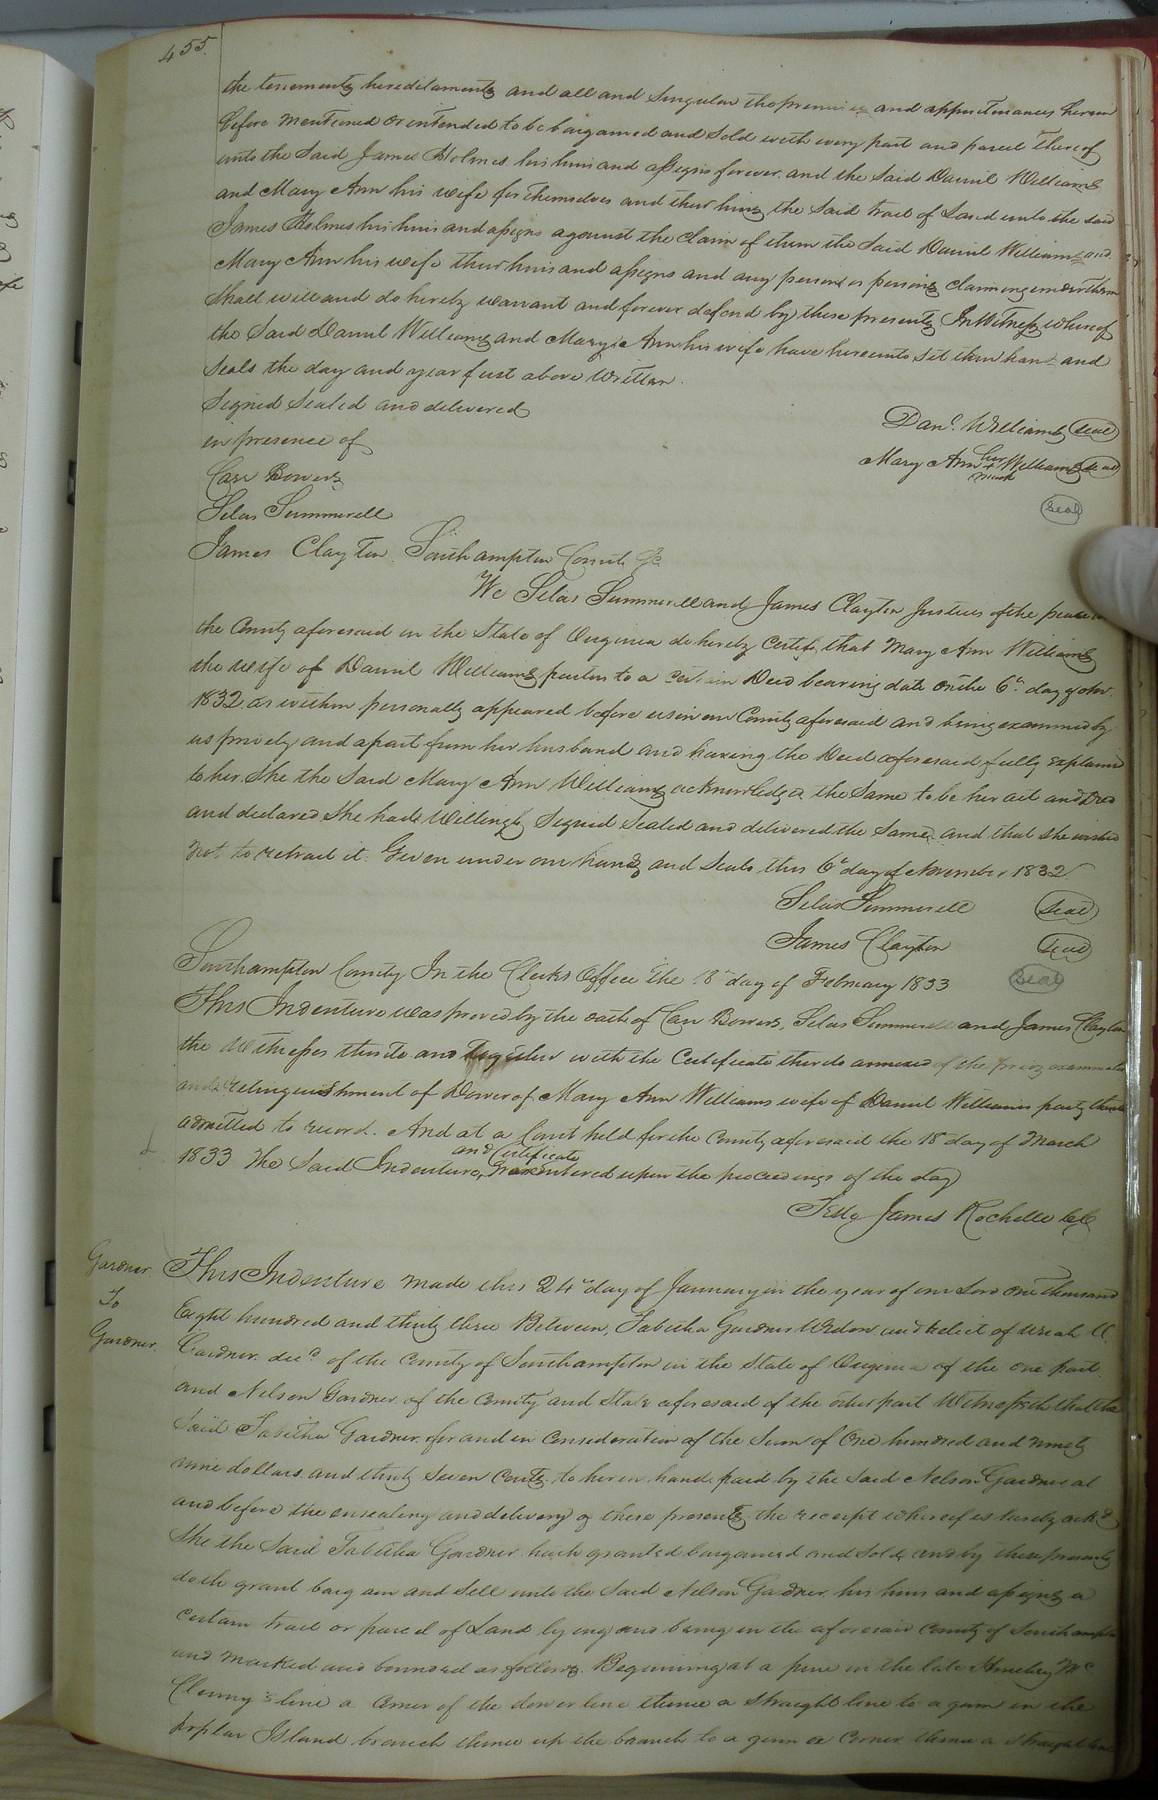 455.
the tenements hereditaments and all and Singular the premises and appurtinances herein
before mentioned or intended to be bargained and Sold with every part and parcel Thereof
unto the Said James Holmes his heirs and assigns forever. and the Said Daniel Williams
and Mary Ann his wife for themselves and their heirs the Said tract of Land unto the said
James Holmes his heirs and assigns against the claim of them the Said Daniel Williams and
Mary Ann his wife their heirs and assigns and any person or persons claiming under them
Shall will and do hereby warrant and forever defend by these presents In Witness whereof
the Said Daniel Williams and Mary Ann his wife have hereunto Set their hands and
Seals the day and year first above Written.
Signed Sealed and delivered
in presence of
Danl. Williams (Seal)
Mary Ann her + mark Williams (Seal)
Carr Bowers
(Seal)
Silas Summerell
James Clayton Southampton County Sc
We Silas Summerell and James Clayton Justices of the peace in
the County aforesaid in the State of Virginia do hereby certify that Mary Ann Williams
the wife of Daniel Williams parties to a certain Deed bearing date on the 6th day of Nov.
1832 as within personally appeared before us in our County aforesaid and being examined by
us privily and apart from her husband and having the Deed aforesaid fully explained
to her She the Said Mary Ann Williams acknowledged the Same to be her act and Deed
and declared She had Willingly Signed Sealed and delivered the Same. and that she wished
not to retract it. Given under our hands and Seals this 6th day of November 1832
Silas Summerell (Seal)
James Clayton (Seal)
(Seal)
Southampton County In the Clerks Office the 18th day of February 1833
This Indenture was proved by the oath of Carr Bowers, Silas Summerell and James Clayton
the Witnesses thereto and together with the Certificate thereto annexed of the privy examination
and relinquishment of Dower of Mary Ann Williams wife of Daniel Williams party thereto
admitted to record. And at a Court held for the County aforesaid the 18 day of March
1833 The Said Indenture and Certificate entered upon the proceedings of the day
Teste James Rochelle CC
Gardner
To
Gardner
This Indenture made this 24th day of January in the year of our Lord one thousand
Eight hundred and thirty three Between, Tabitha Gardner Widow and Relict of
Gardner decd. of the County of Southampton in the State of Virginia of the one part
and Nelson Gardner of the County and State aforesaid of the other part Witnesseth that the
Said Tabitha Gardner for and in consideration of the Sum of One hundred and ninety
nine dollars and thirty Seven Cents to her in hand paid by the Said Nelson Gardner at
and before the ensealing and delivery of these presents the receipt whereof is hereby ackd
She the Said Tabitha Gardner hath granted bargained and Sold and by these presents
doth grant bargain and Sell unto the Said Nelson Gardner his heirs and assigns a
certain tract or parcel of Land lying and being in the aforesaid County of Southampton
and marked and bounded as follows. Beginning at a pine in the late Mc
Clenny's line a corner of the dower line thence a Straight line to a gum in the
poplar Island branch thence up the branch to a gum a Corner thence a Straight line